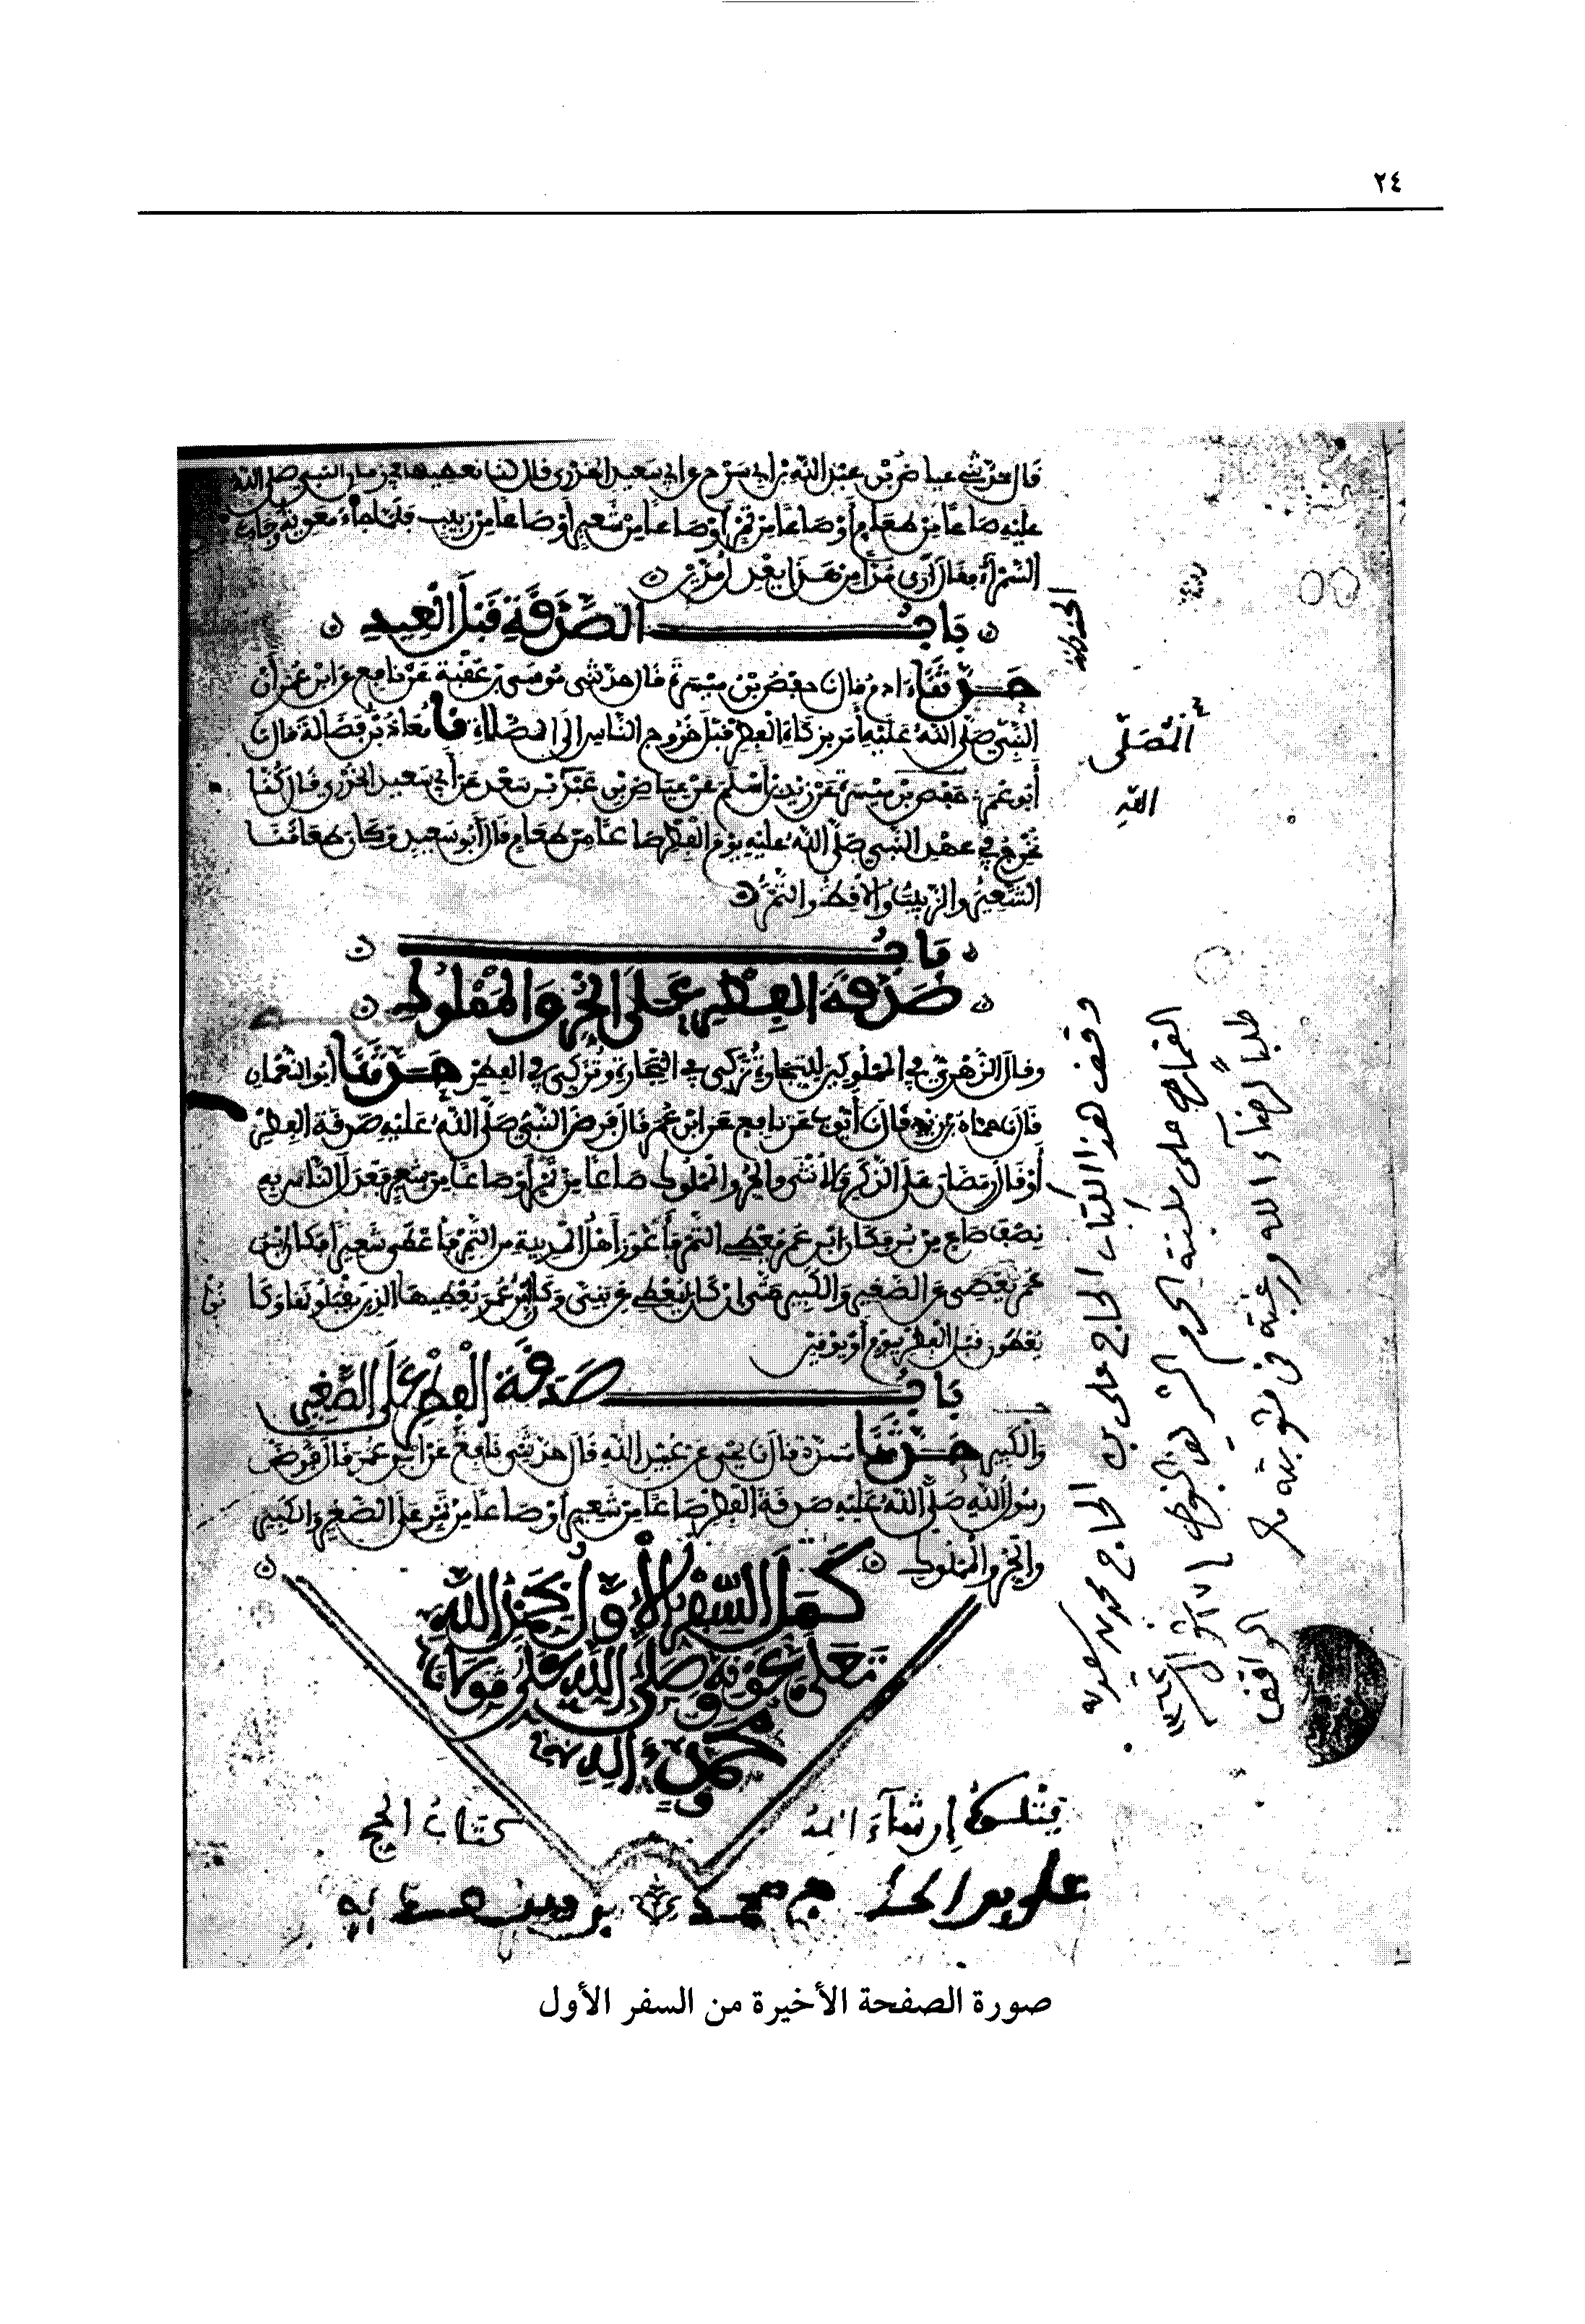 ٢٤
قال حدثني عياض بن عبد الله بن أبي سرح عن أبي سعيد الخدري قال كنا نعطيها في زمان النبي صلى الله
عليه صاعا من طعام أو صاعا من تمر أو صاعا من شعير أو صاعا من زبيب فلما جاء معوية وجاءت
السمراء فقال أرى مدا من هذا يعدل مدين
باب الصدقة قبل العيد
حدثنا ءادم قال نا حفص بن ميسرة قال حدثني موسى بن عقبة عن نافع عن ابن عمر أن
النبي صلى الله عليه أمر بزكاة الفطر قبل خروج الناس إلى الصلاة نا معاذ بن فضالة قال نا
أبو عمر حفص بن ميسرة عن زيد بن أسلم عن عياض بن عبد الله بن سعد عن أبي سعيد الخدري قال كنا
نخرج في عهد النبي صلى الله عليه يوم الفطر صاعا من طعام قال أبو سعيد وكان طعامنا
الشعير والزبيب والأقط والتمر
باب
صدقة الفطر على الحر والمملوك
وقال الزهري في المملوكين للتجارة تزكى في التجارة وتزكى في الفطر حدثنا أبو النعمان
قال نا حماد بن زيد قال نا أيوب عن نافع عن ابن عمر قال فرض النبي صلى الله عليه صدقة الفطر
أو قال رمضان على الذكر والأنثى والحر والمملوك صاعا من تمر أو صاعا من شعير فعدل الناس به
نصف صاع من بر فكان ابن عمر يعطي التمر فأعوز أهل المدينة من التمر فأعطى شعيرا فكان ابن
عمر يعطي عن الصغير والكبير حتى إن كان يعطي عن بني وكان ابن عمر يعطيها الذين يقبلونها وكانوا
يعطون قبل الفطر بيوم أو يومين
باب صدقة الفطر على الصغير
والكبير حدثنا مسدد قال نا يحيى عن عبيد الله قال حدثني نافع عن ابن عمر قال فرض
رسول الله صلى الله عليه صدقة الفطر صاعا من شعير أو صاعا من تمر على الصغير والكبير
والحر والمملوك
كمل السفر الأول بحمد الله
تعلى وعونه صلى الله على مولانا
محمد وءاله
يتلوه إن شاء الله
كتاب الحج
الحمد لله
المصلى
الله
وقف هذا الكتاب الحاج على بن الحاج محمد بن
على مكتبة الحرم الشريف النبوي ١٧ شوال
طلبا لرضاء الله ورغبة في مثوبته
الواقف
صورة الصفحة الأخيرة من السفر الأول